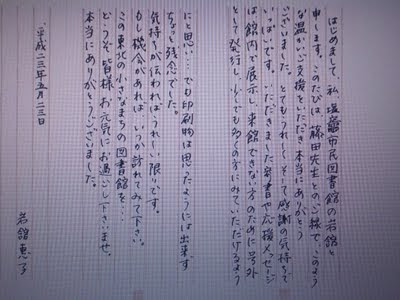 はじめまして、私塩竈市民図書館の岩舘と
申します。このたびは、篠田先生とのご縁で、このよう
な温かいご支援をいただき本当にありがとう
ございました。とてもうれしく、そして感謝の気持ちで
いっぱいです。いただきました葉書や応援メッセージ
は館内で展示し、来館できない方のために号外
として発行し、少しでも多くの方にみていただけるよう
にと思い…でも印刷物は思ったようには出来ず
ちょっと残念でした。
気持ちが伝わればうれしい限りです。
もし機会があれば、いつか訪れてみて下さい。
この東北の小さなまちの図書館を…
どうぞ皆様、お元気にお過ごし下さいませ。
本当にありがとうございました。
平成二三年五月二三日
岩舘恵子